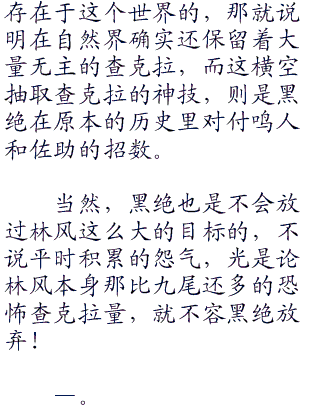 存在于这个世界的，那就说
明在自然界确实还保留着大
量无主的查克拉，而这横空
抽取查克拉的神技，则是黑
绝在原本的历史里对付鸣人
和佐助的招数。
当然，黑绝也是不会放
过林风这么大的目标的，不
说平时积累的怨气，光是论
林风本身那比九尾还多的恐
怖查克拉量，就不容黑绝放
弃！
一。